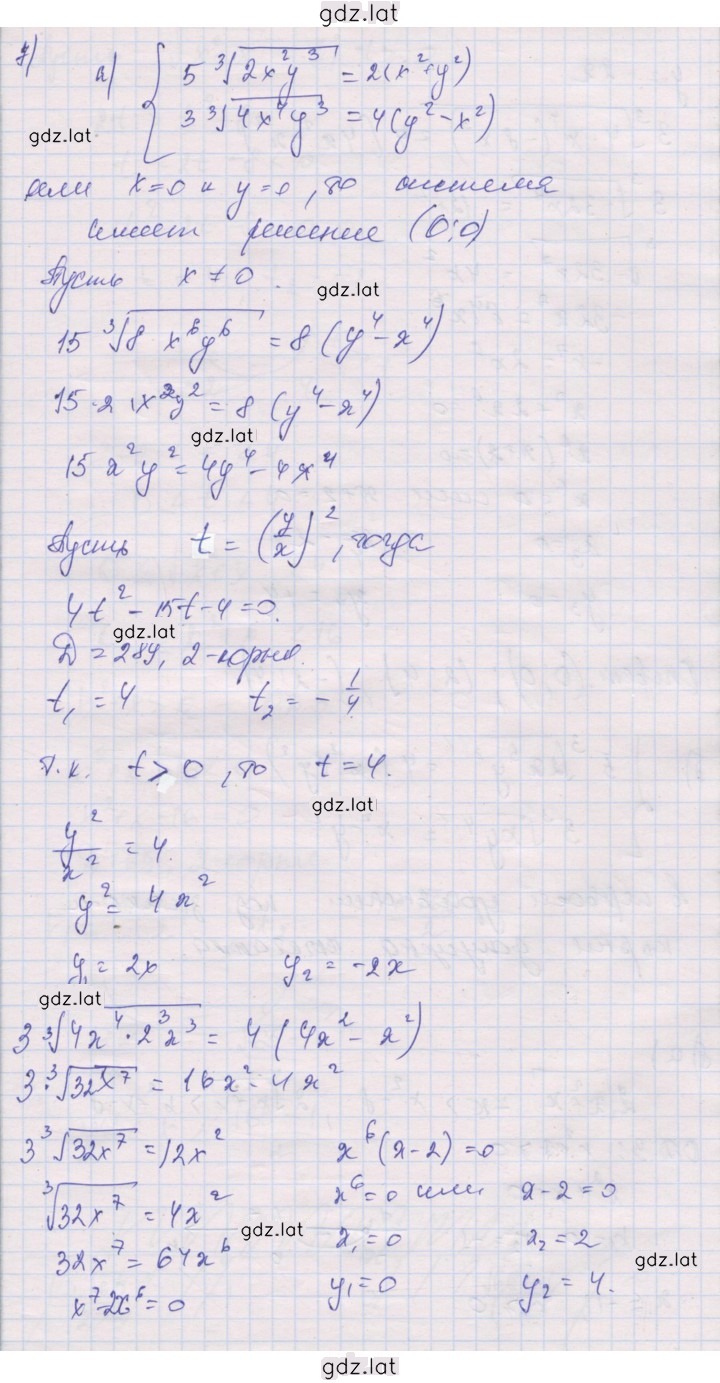 gdz.lat
7)
а) { 5 ∛(2x²y³) = 2(x²+y²)
3 ∛(4x⁴y³) = 4(y²-x²)
gdz.lat
если x=0 и y=0, то система
имеет решение (0;0)
Пусть x≠0.
gdz.lat
15 ∛(8 x⁶y⁶) = 8(y⁴-x⁴)
15·2·x²y² = 8(y⁴-x⁴)
gdz.lat
15x²y² = 4y⁴-4x⁴
Пусть t = (y/x)², тогда
4t²-15t-4=0.
gdz.lat
D = 289, 2-корня.
t₁ = 4 t₂ = -1/4
Т.к. t>0, то t=4.
gdz.lat
y²/x² = 4.
y² = 4x²
y₁ = 2x y₂ = -2x
gdz.lat
3 ∛(4x⁴·2³x³) = 4(4x²-x²)
3·∛(32x⁷) = 16x²-4x²
3 ∛(32x⁷) = 12x² x⁶(x-2)=0
∛(32x⁷) = 4x² x⁶=0 или x-2=0
gdz.lat
32x⁷ = 64x⁶ x₁=0 x₂=2
gdz.lat
x⁷-2x⁶=0 y₁=0 y₂=4.
gdz.lat